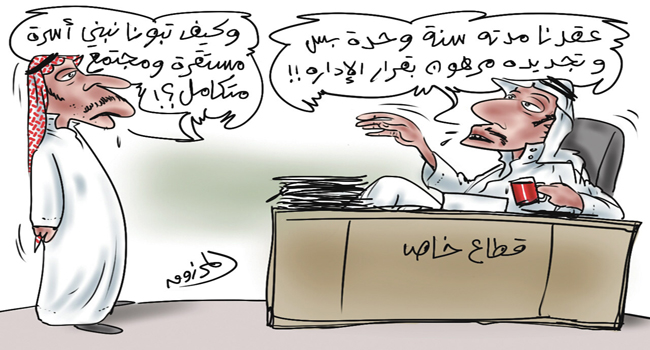 عقدنا مدته سنة وحدة بس
وتجديده مرهون بقرار الإداره !!
وكيف تبونا نبني أسرة
مستقرة ومجتمع
متكامل ؟!
قطاع خاص